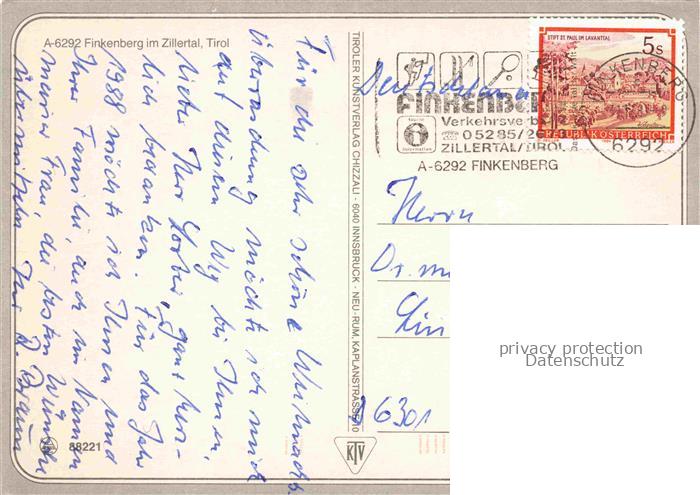 A-6292 Finkenberg im Zillertal, Tirol
Für die sehr schöne Weihnachts
überraschung möchte ich mich
auf diesem Weg bei Ihnen,
lieber Herr ganz herz-
lich bedanken. Für das Jahr
1988 möchte ich Ihnen und
Ihrer Familie, auch im Namen
meiner Frau, die besten Wünsche
übermitteln. Ihr D. Braun
88221
TIROLER KUNSTVERLAG CHIZZALI · 6040 INNSBRUCK - NEU-RUM, KAPLANSTRASSE 10
KTV
STIFT ST. PAUL IM LAVANTTAL
5s
REPUBLIK ÖSTERREICH
FINKENBERG
6292
FINKENBE
Verkehrsverb
05285/26
ZILLERTAL/TIROL
A-6292 FINKENBERG
Deutschland
Herrn
Dr. m
Lin
D 6301
privacy protection
Datenschutz